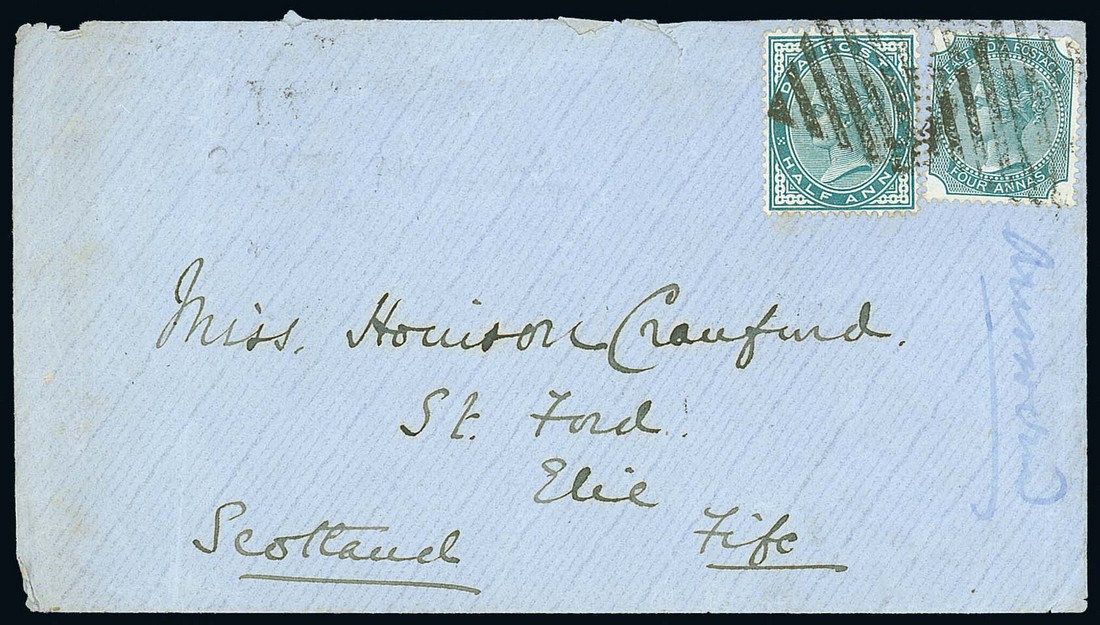 INDIA POSTAGE
HALF ANNA
EAST INDIA POSTAGE
FOUR ANNAS
Miss. Houison Craufurd.
St. Ford.
Elie
Fife
Scotland